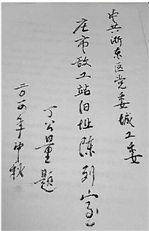 中共浙东区党委城工委
庄市政工站旧址陈列室
丁公量题
二〇一〇年中秋